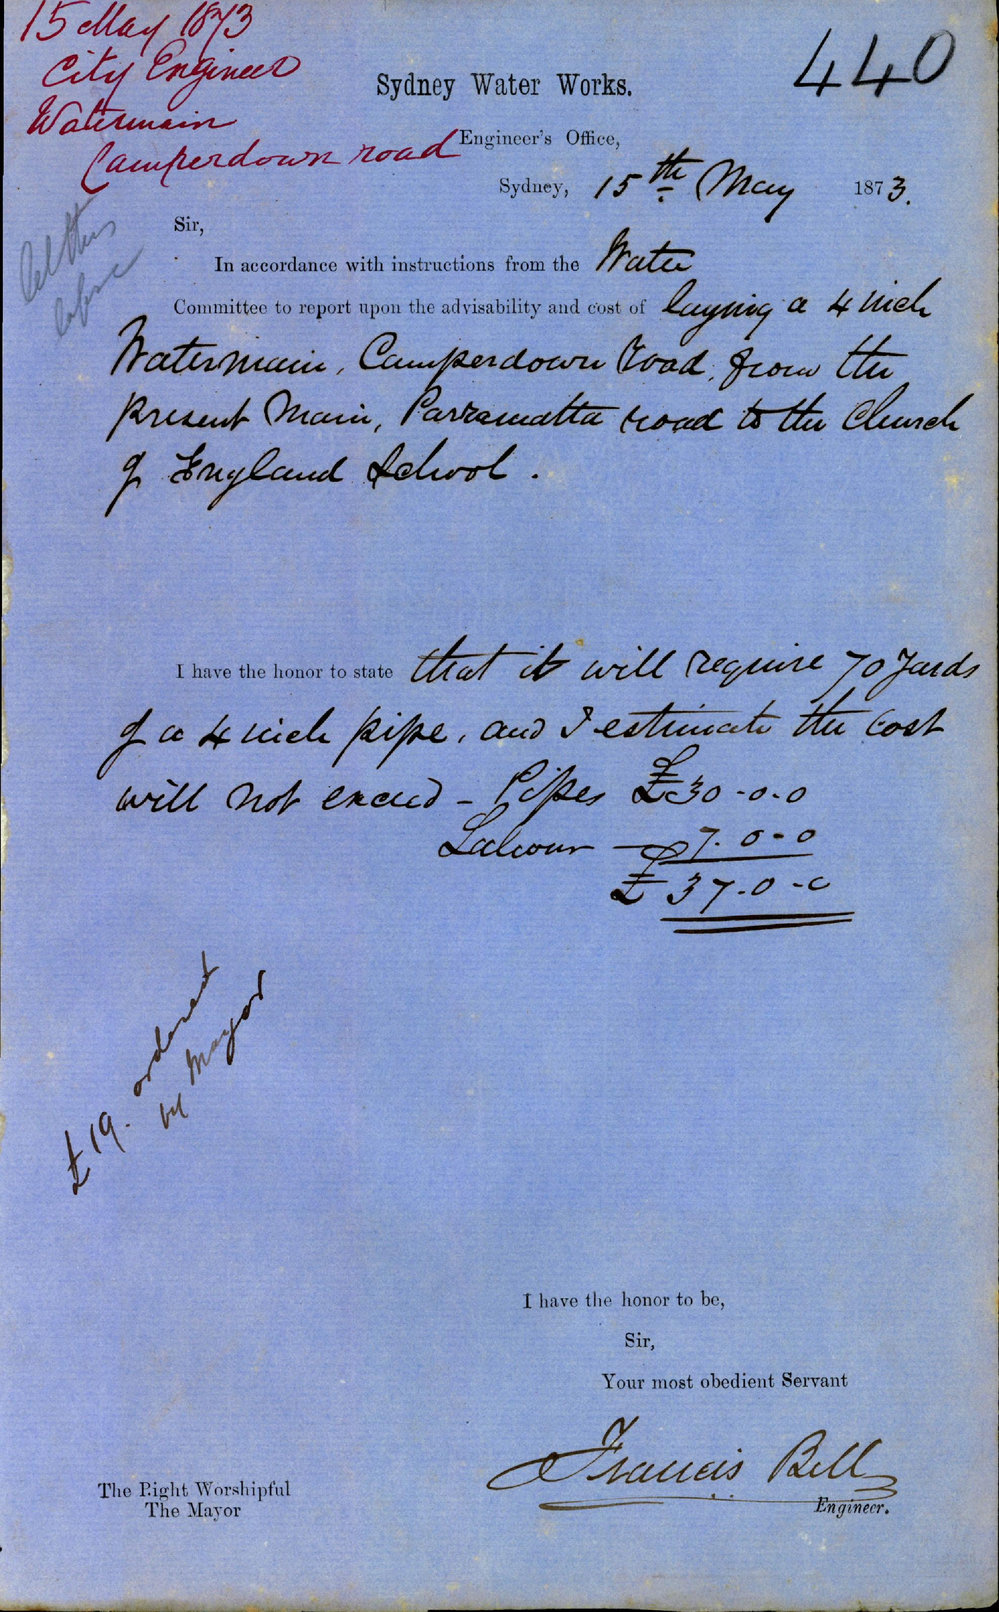 15 May 1873
City Engineer
Watermain
Camperdown road
440
Sydney Water Works.
Engineer's Office,
Sydney, 15th May 1873.
Sir,
In accordance with instructions from the Water
Committee to report upon the advisability and cost of laying a 4 inch
Watermain, Camperdown road, from the
present Main, Parramatta road to the Church
of England School.
I have the honor to state that it will require 70 yards
of a 4 inch pipe, and I estimate the cost
will not exceed - Pipes £30-0-0
Labour - 7.0-0
£37-0-0
£19. ordered
by Mayor
I have the honor to be,
Sir,
Your most obedient Servant
Francis Bell
Engineer.
The Right Worshipful
The Mayor